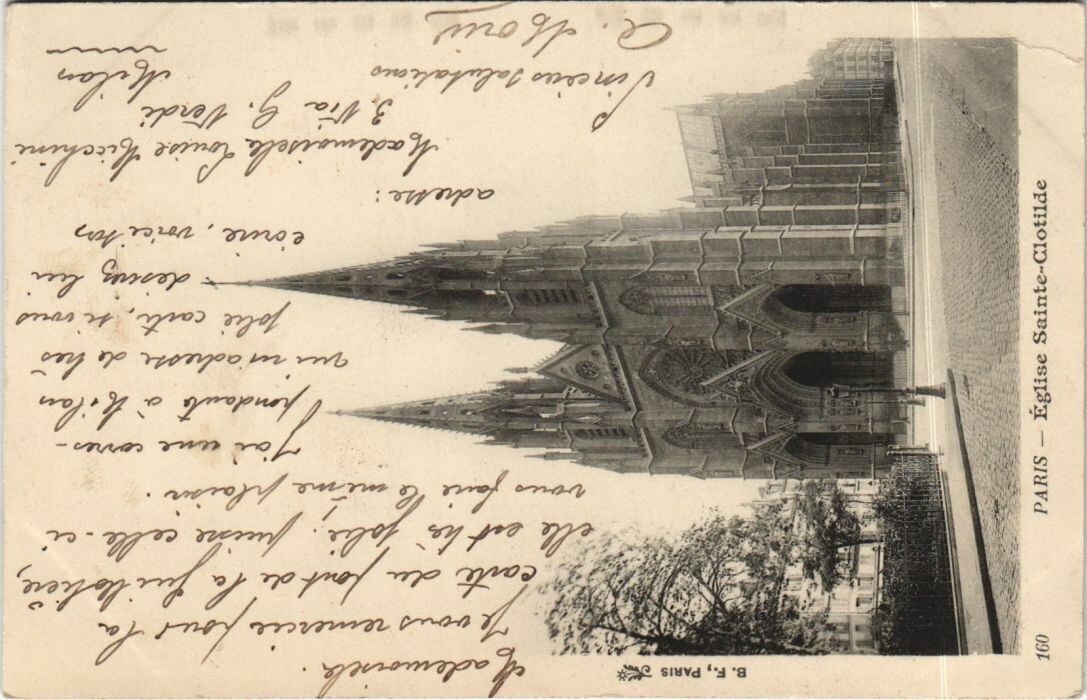 Mademoiselle.
Je vous remercie pour la
carte du pont de la Guillotière,
elle est très jolie; puisse celle-ci
vous faire le même plaisir.
J'ai une corres-
pondante à Milan
qui m'adresse de très
jolie carte, si vous
désirez lui
écrire, voici son
adresse:
Mademoiselle Louise Micchini
3 Via G. Verdi
Milan
Sincères salutations
B. F., PARIS
160 PARIS — Église Sainte-Clotilde